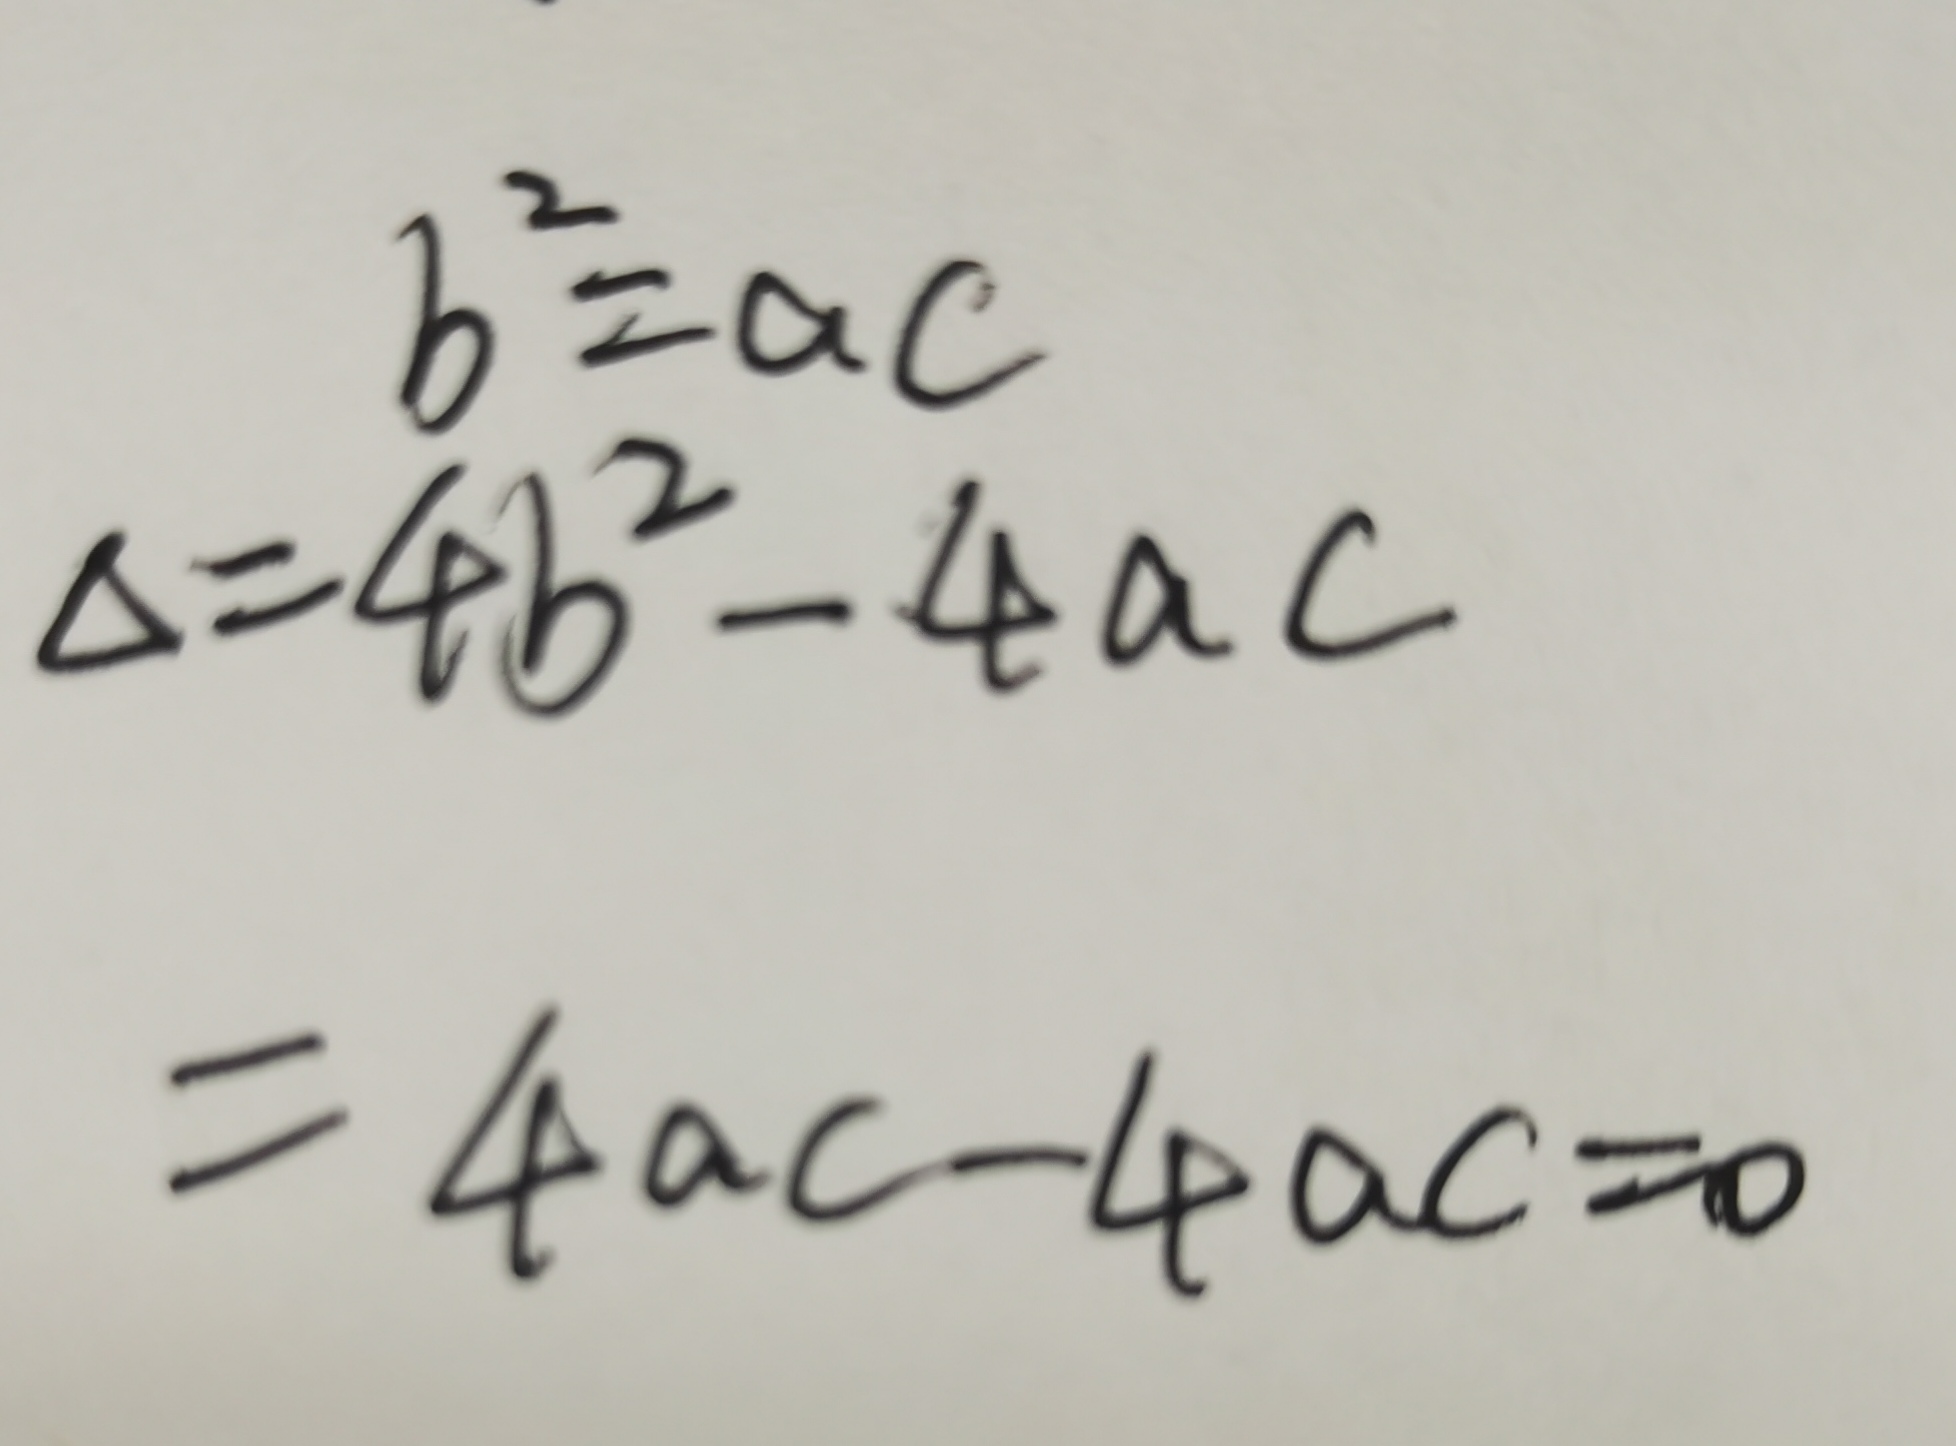 b²=ac
Δ=4b²-4ac
=4ac-4ac=0